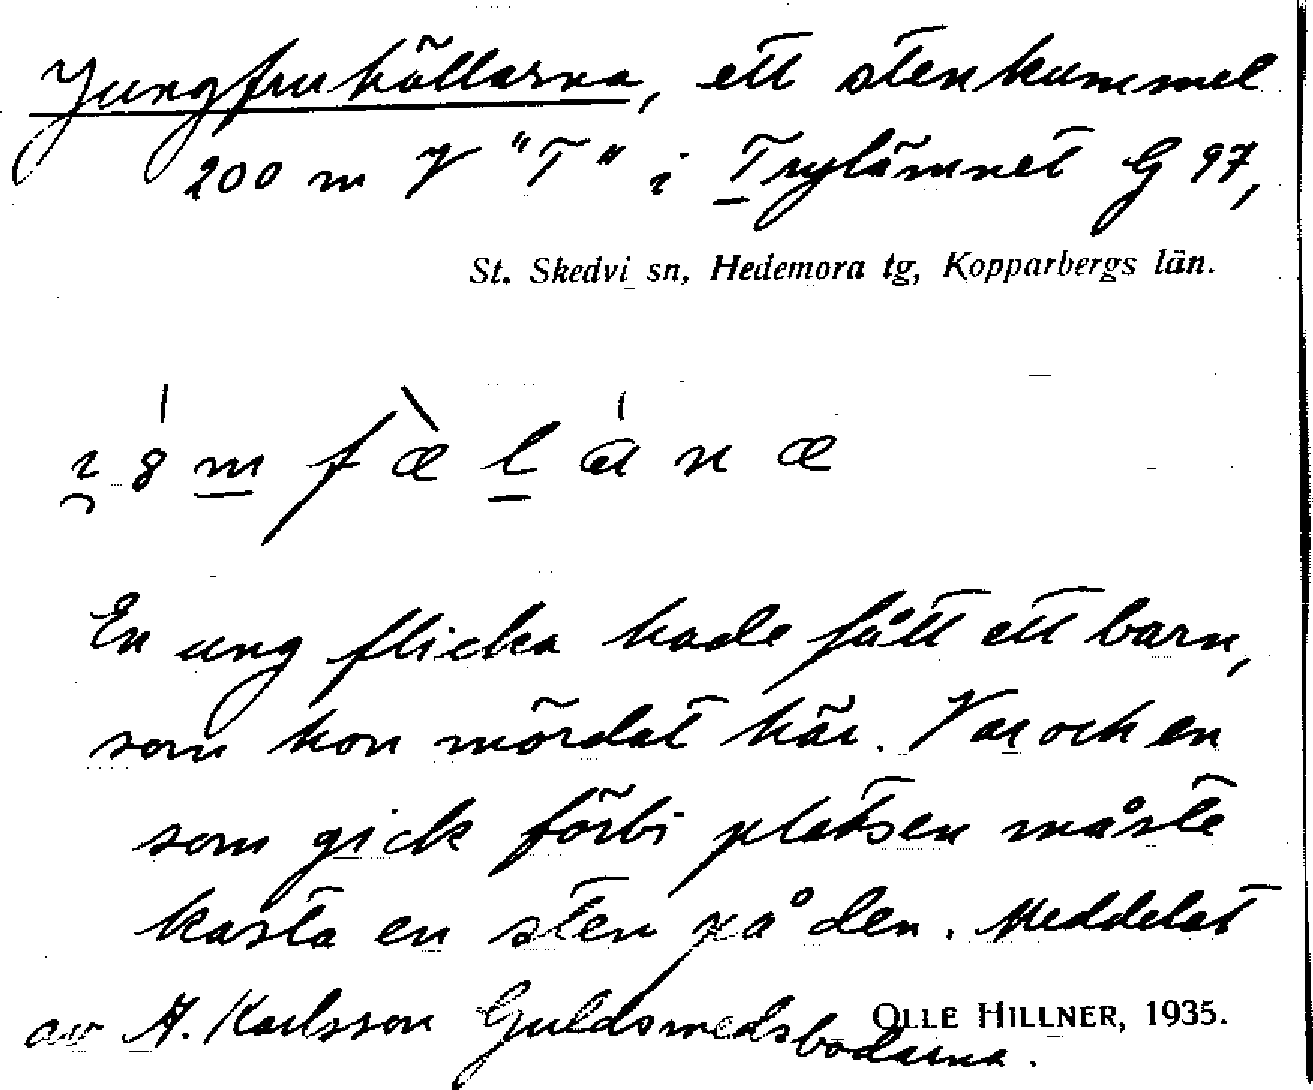 Jungfruhällarna, ett stenkummel
200 m V "T" i Trylämnet G 97,
St. Skedvi sn, Hedemora tg, Kopparbergs län.
En ung flicka hade fått ett barn,
som hon mördat här. Var och en
som gick förbi platsen måste
kasta en sten på den. Meddelat
av A. Karlsson Guldsmedsbodarna.
OLLE HILLNER, 1935.